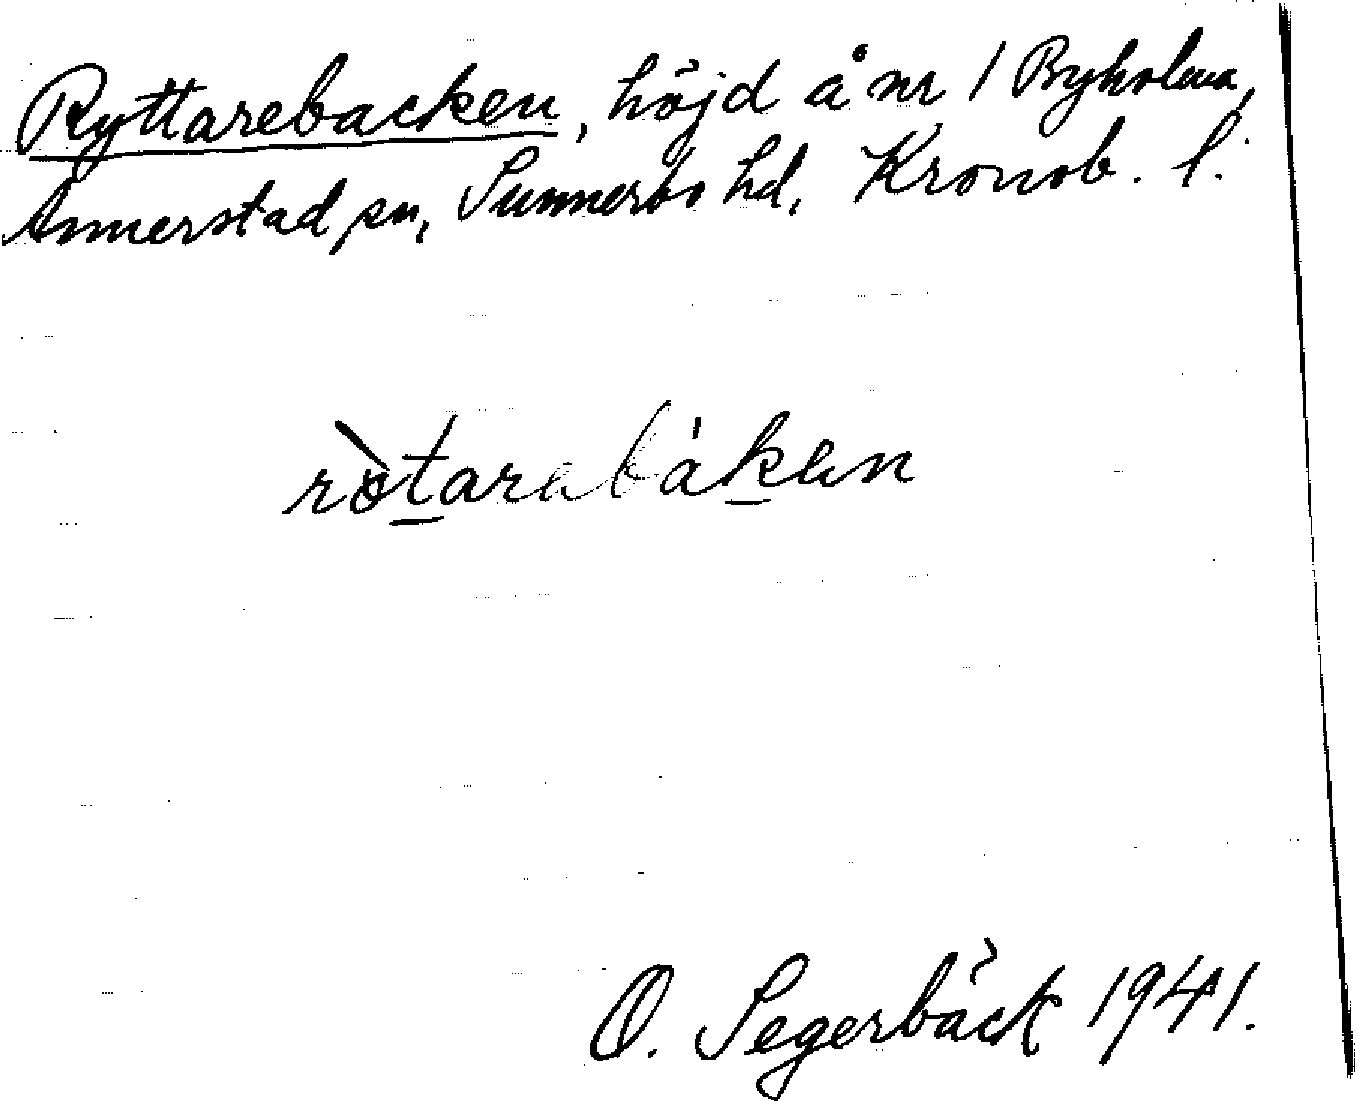 Ryttarebacken, höjd å nr 1 Byholma,
Annerstad sn, Sunnerbo hd, Kronob. l.
ròtarabákan
O. Segerbäck 1941.